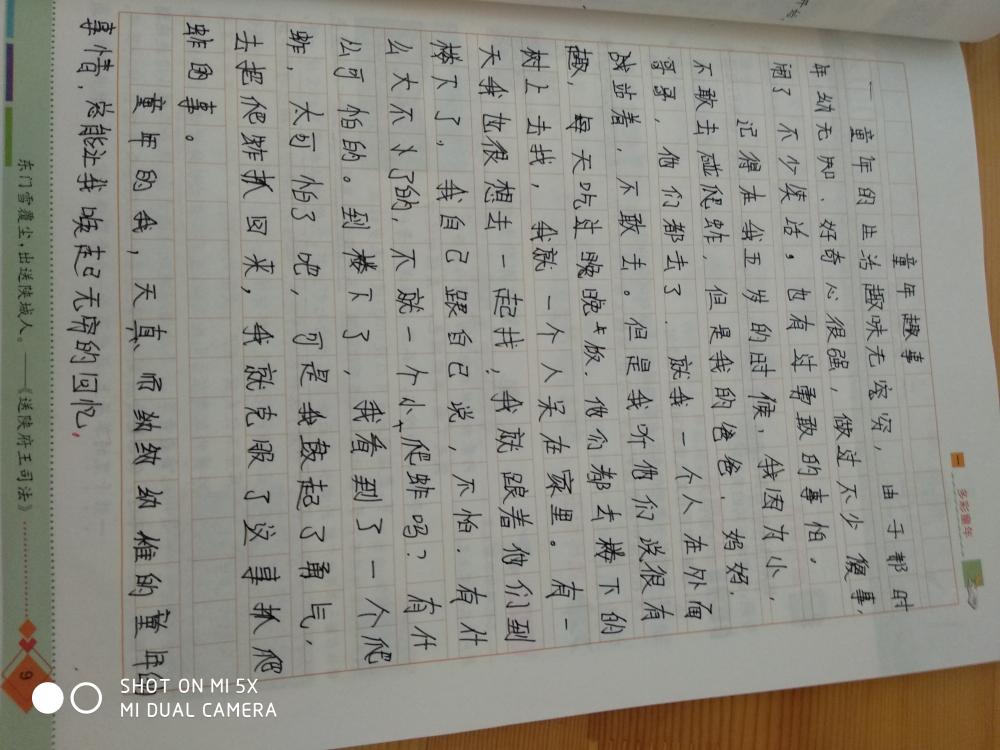 一 多彩童年
童年趣事
一 童年的生活趣味无容穷，由于那时
年幼无知、好奇心很强，做过不少傻事，
闹了不少笑话。也有过勇敢的事怕。
记得在我五岁的时候，我因为小，
不敢去碰爬蚱，但是我的爸爸、妈妈、
哥哥，他们都去了．就我一个人在外面
战监着，不敢去。但是我听他们说很有
趣，每天吃过晚晚饭．他们都去楼下的
树上去找，我就一个人呆在家里。有一
天我也很想去一起找，我就跟着他们到
楼下了，我自己跟自己说，不怕．有什
么大不了的，不就一个小爬蚱吗？有什
么可怕的。到楼下了，我看到了一个爬
蚱，太可怕了吧，可是我鼓起了勇气，
去把爬蚱抓回来，我就克服了这事抓爬
蚱的事。
童年的我，天真而幼幼幼稚的童年的
事情，总能让我唤起已无穷的回忆，
东门雪覆尘，出送陕城人。——《送陕府王司法》
9
SHOT ON MI 5X
MI DUAL CAMERA